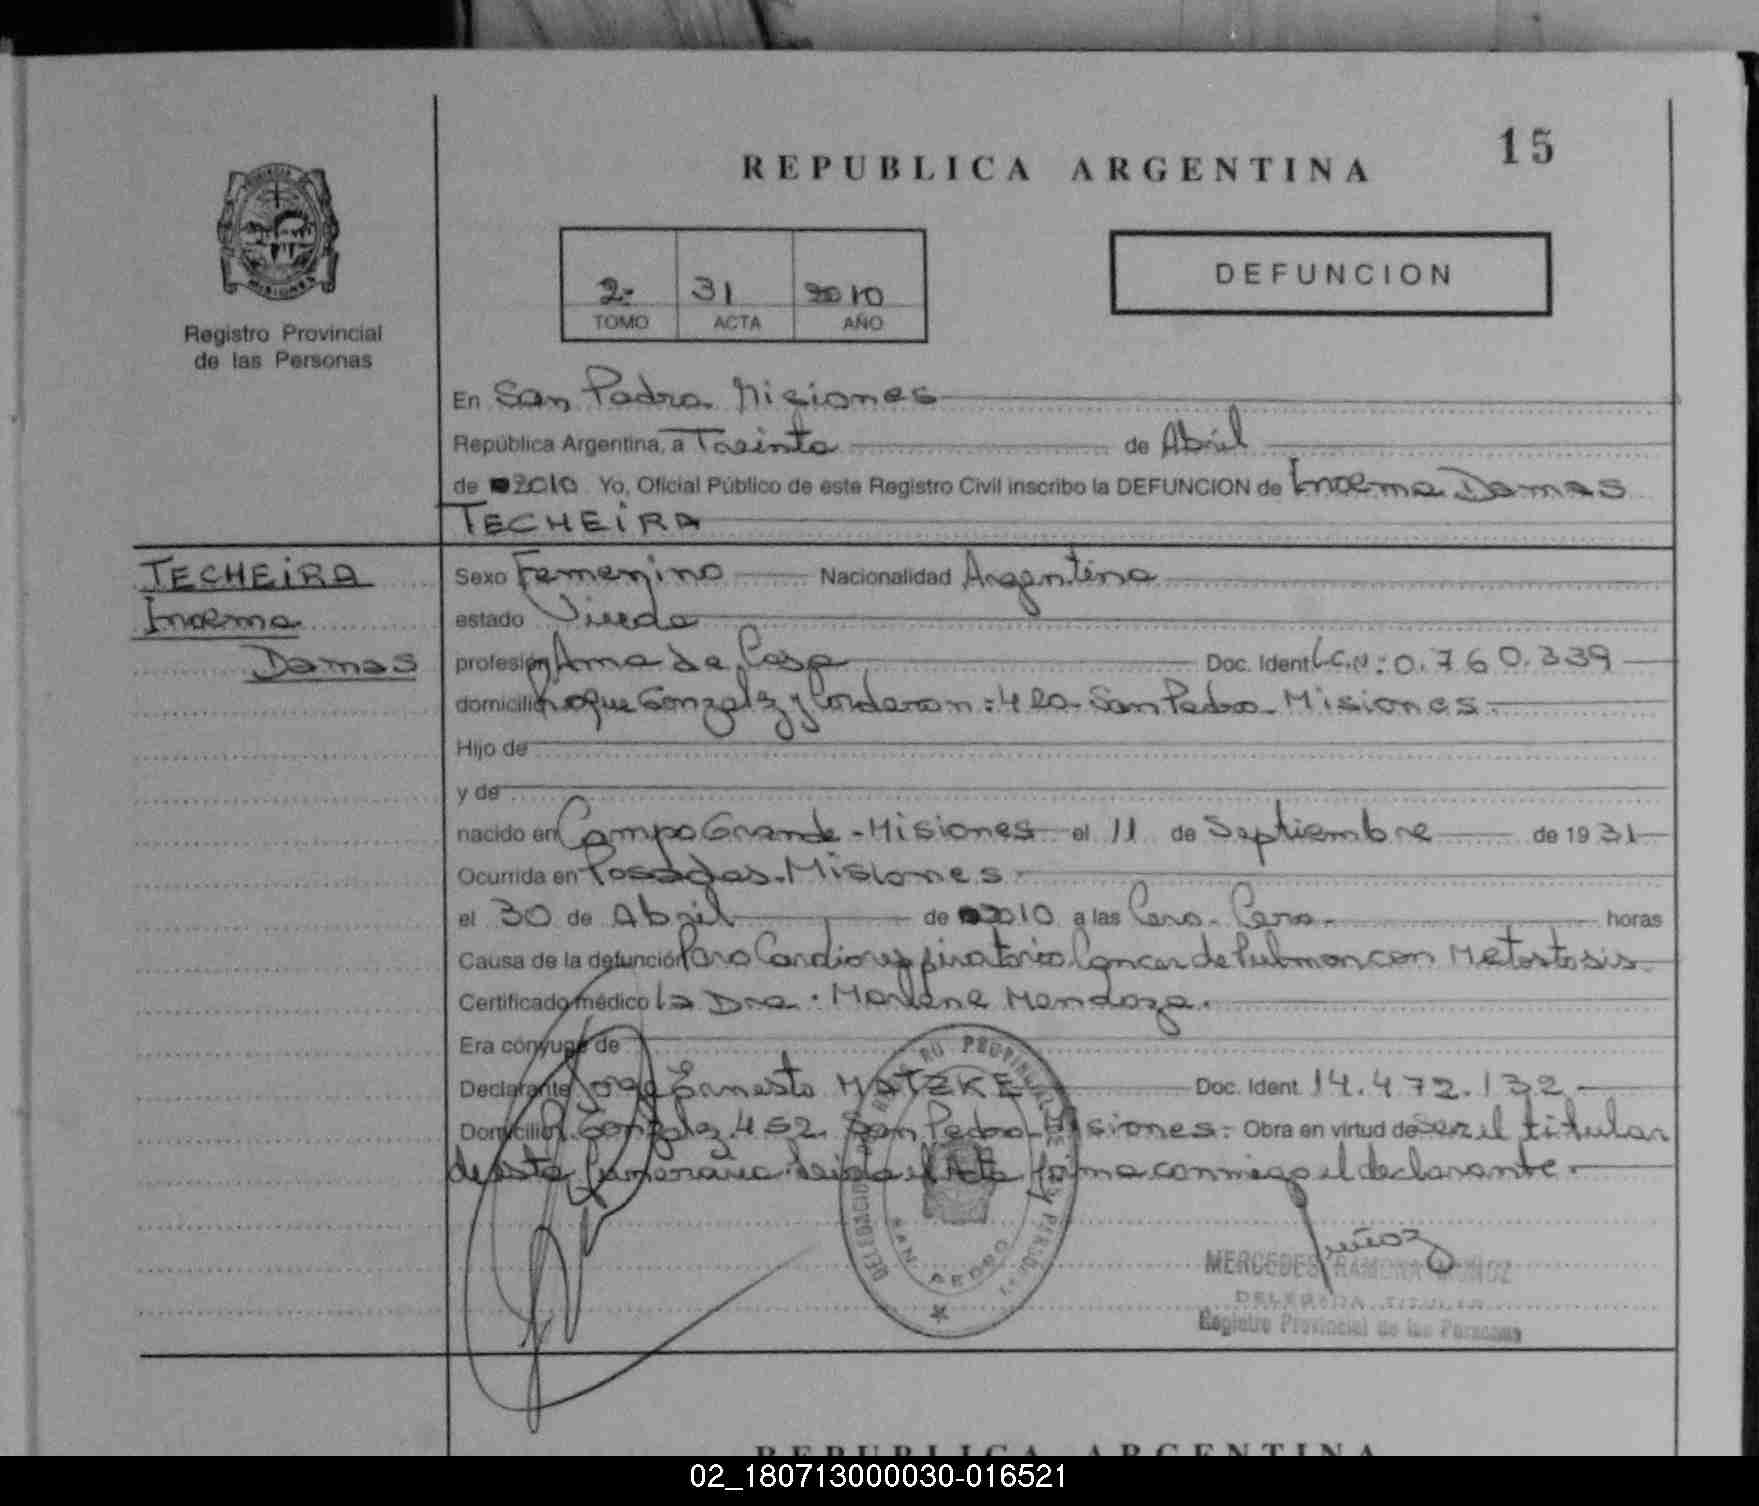 15
REPUBLICA ARGENTINA
2- 31 2010
TOMO ACTA AÑO
DEFUNCION
MISIONES
Registro Provincial
de las Personas
En San Pedro Misiones
República Argentina, a Treinta de Abril
de 2010 Yo, Oficial Público de este Registro Civil inscribo la DEFUNCION de Inoema Damas
TECHEIRA
TECHEIRA
Inoema
Damas
Sexo Femenino Nacionalidad Argentina
estado Viuda
profesión Ama de Casa Doc. Ident L.C.Nº: 0.760.339
domicilio Roque Gonzalz y : 420 - San Pedro - Misiones.
Hijo de
y de
nacido en Campo Grande - Misiones el 11 de Septiembre de 1931
Ocurrida en Posadas - Misiones
el 30 de Abril de 2010 a las Cero - Cero - horas
Causa de la defunción Paro Cardiorespiratorio Cancer de Pulmon con Metastasis
Certificado médico la Dra. Marlene Mendoza.
Era cónyuge de
Declarante Jorge Ernesto MATZKE Doc. Ident. 14.472.132
Domicilio R. Gonzalz 452 San Pedro - Misiones. Obra en virtud de ser el titular
de esta funeraria leida el Acta firma conmigo el declarante.
REGISTRO PROVINCIAL DE LAS PERSONAS
DELEGACION
SAN PEDRO
Muñoz
MERCEDES RAMONA MUÑOZ
DELEGADA TITULAR
Registro Provincial de las Personas
REPUBLICA ARGENTINA
02_180713000030-016521